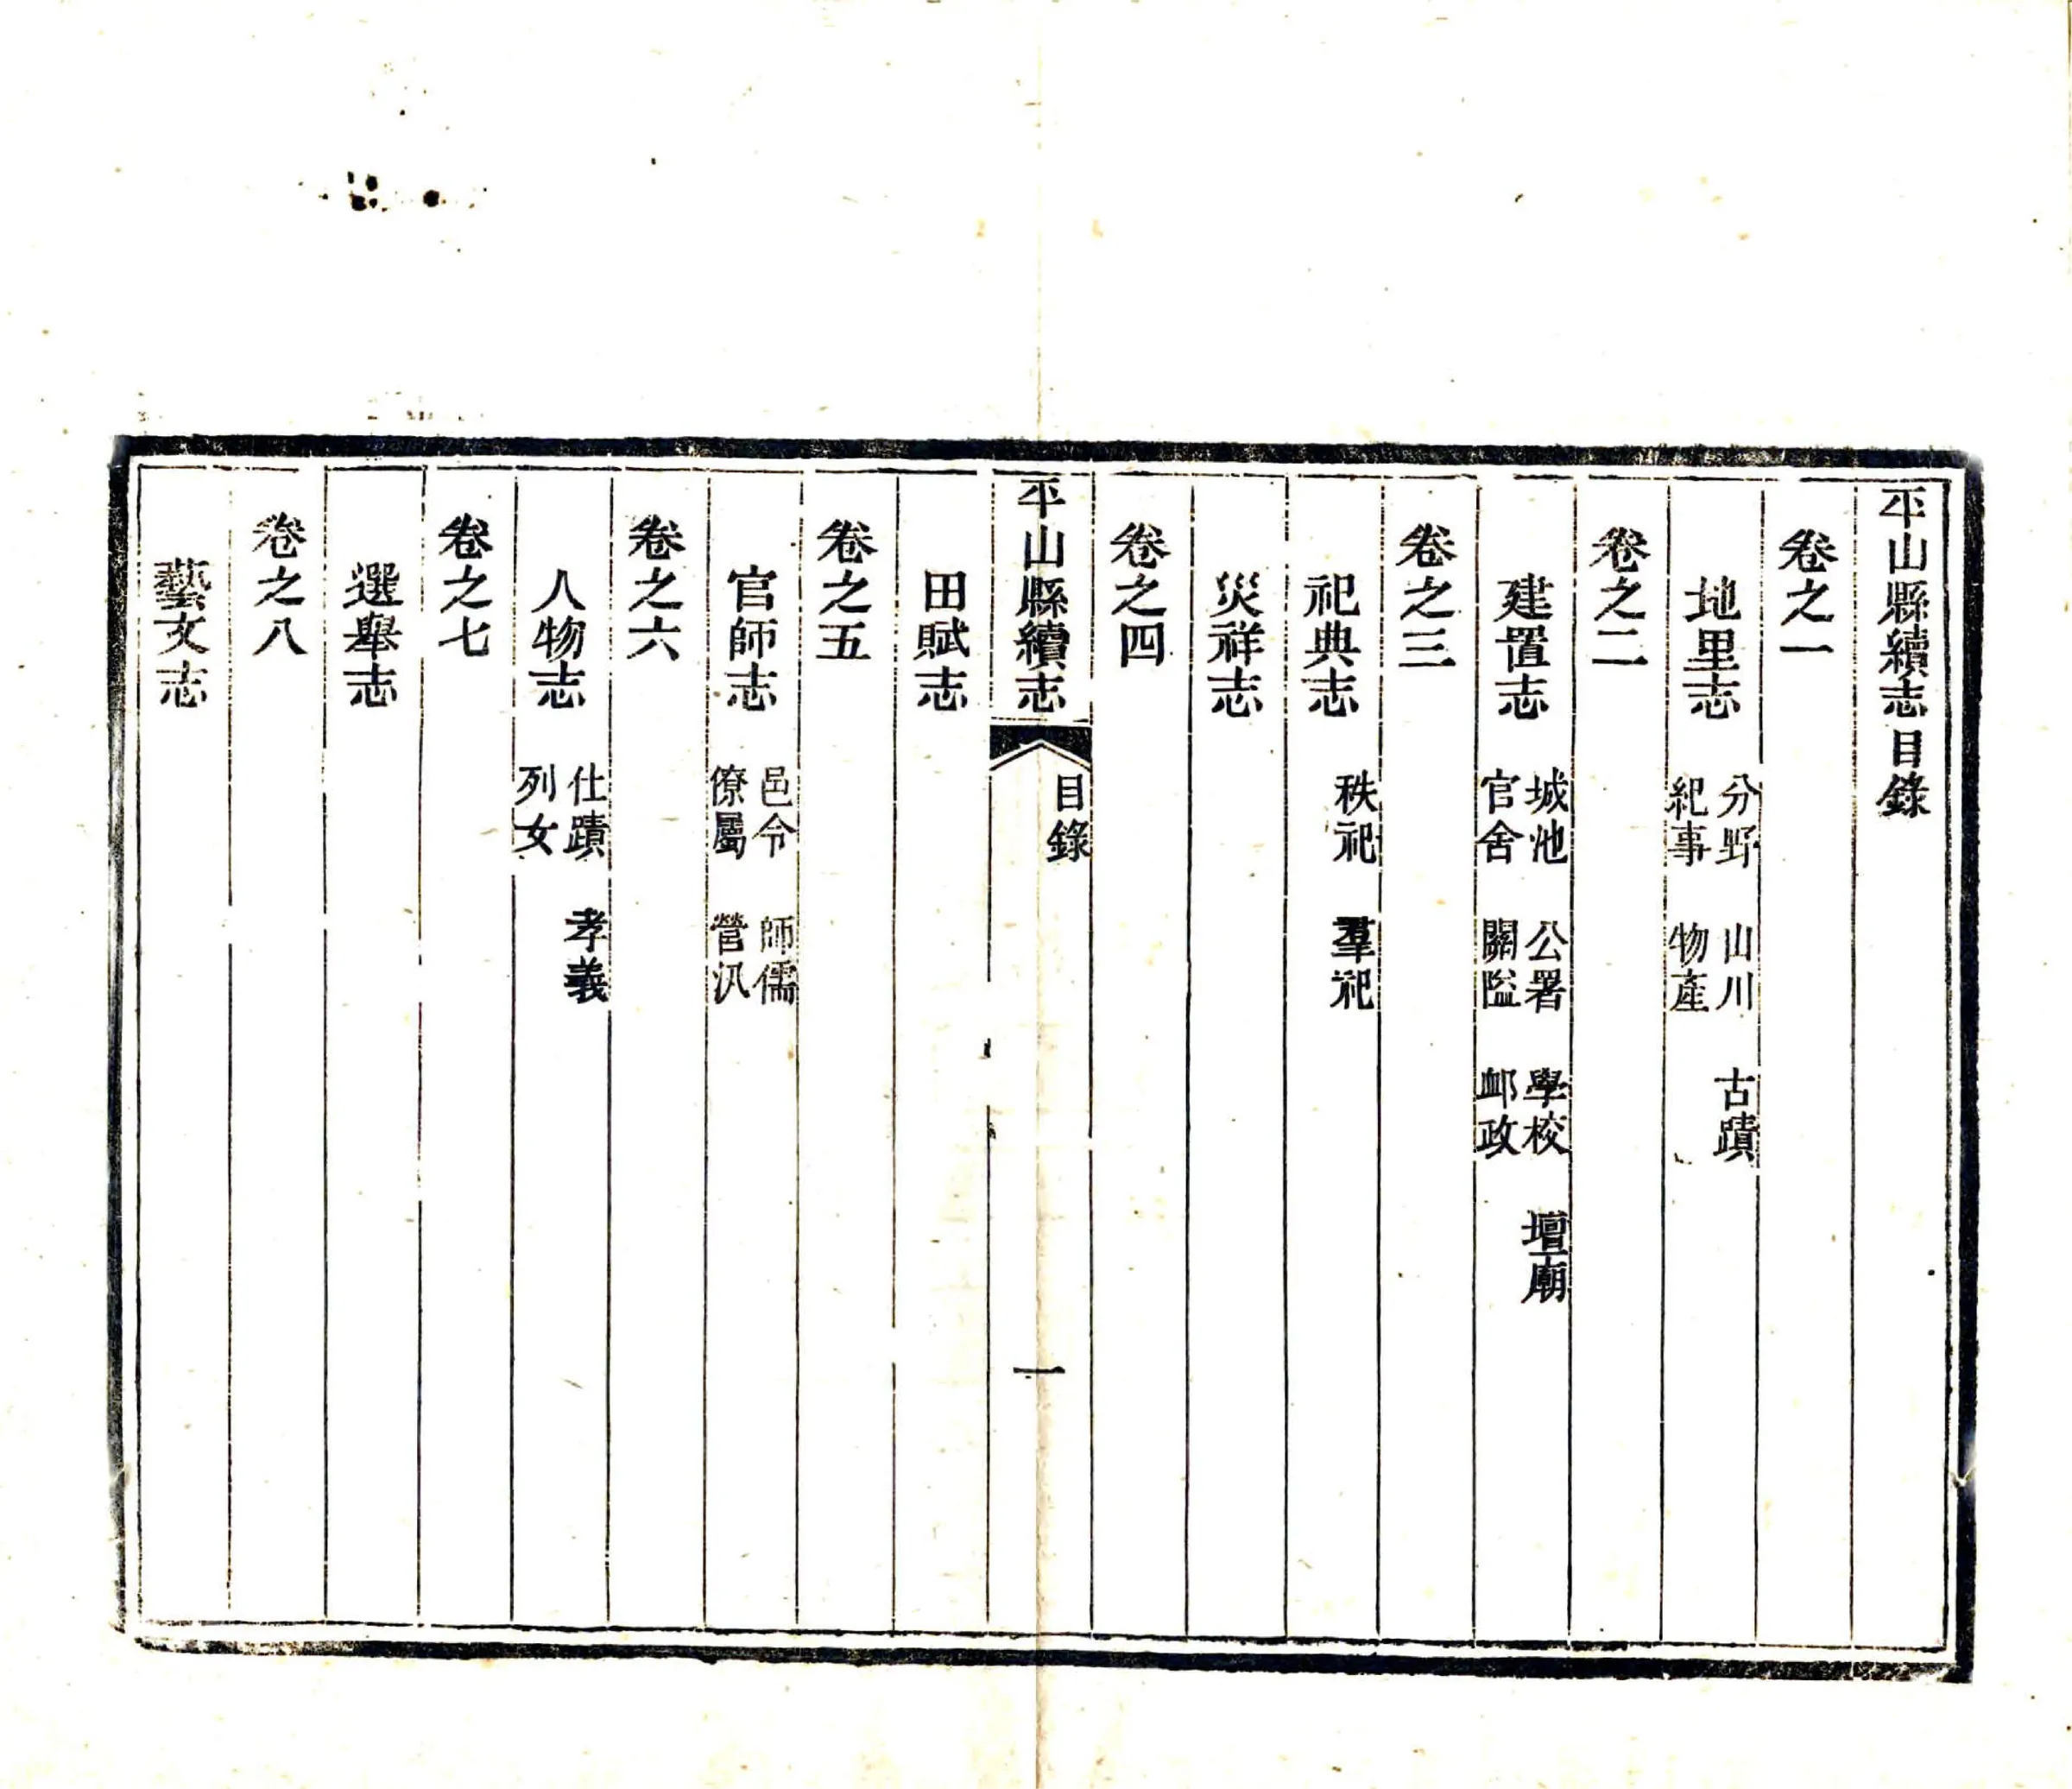 平山縣續志目錄
卷之一
地里志 分野 山川 古蹟
紀事 物產
卷之二
建置志 城池 公署 學校 壇廟
官舍 關隘 邮政
卷之三
祀典志 秩祀 羣祀
災祥志
卷之四
平山縣續志 目錄 一
田賦志
卷之五
官師志 邑令 師儒
僚屬 營汛
卷之六
人物志 仕蹟 孝義
列女
卷之七
選舉志
卷之八
藝文志